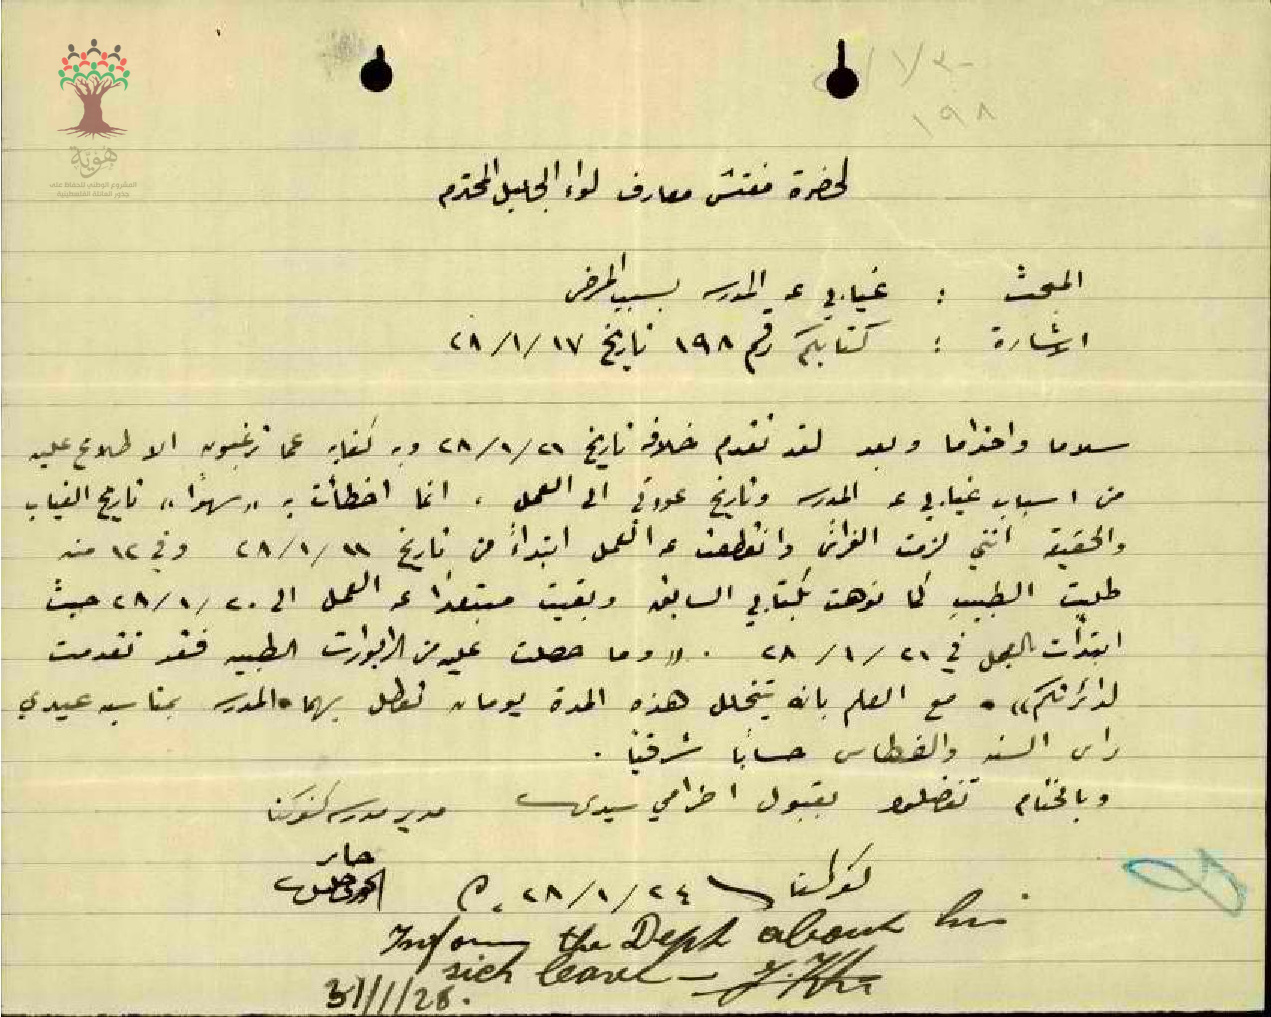 ٣٠/١/
١٩٨
هوية
المشروع الوطني للحفاظ على
جذور العائلة الفلسطينية
لحضرة مفتش معارف لواء الجليل المحترم
المبحث : غيابي عن المدرسه بسبب المرض
الاشارة : كتابكم رقم ١٩٨ تاريخ ٢٨/١/١٧
سلاما واحتراما وبعد لقد تقدم خلافه تاريخ ٢٨/١/٢١ وبه كفايه عما ترغبون الاطلاع عليه
من اسباب غيابي عن المدرسه وتاريخ عودتي الى العمل . انما اخطأت به "سهوًا" تاريخ الغياب
والحقيقه انني لزمت الفراش وانقطعت عن العمل ابتداءً من تاريخ ٢٨/١/١١ وفي ١٢ منه
طلبت الطبيب كما نوهت بكتابي السابق وبقيت مبتعدًا عن العمل الى ٢٨/١/٢٠ حيث
ابتدأت العمل في ٢٨/١/٢١ . "وما حصلت عليه من الرابورت الطبيه فقد تقدمت
لدائرتكم" . مع العلم بانه يتخلل هذه المدة يومان تعطل بهما المدرسه بمناسبه عيدي
راس السنه والغطاس حسابًا شرقيًا .
وبالختام تفضلوا بقبول احترامي سيدي مدير مدرسه
٢٨/١/٢٤
الخوري
Inform the Dept about his
sick leave
31/1/28.